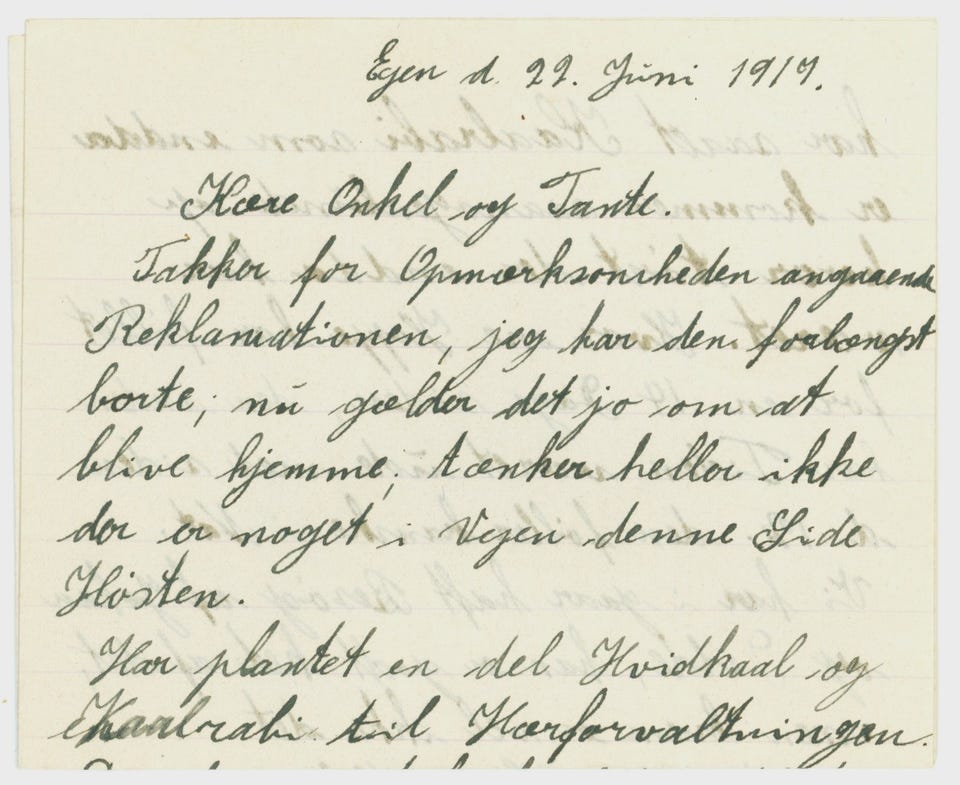 Egen d. 22. Juni 1917.
Kære Onkel og Tante.
Takker for Opmærksomheden angaaende
Reklamationen, jeg har den forlængst
borte; nu gælder det jo om at
blive hjemme; tænker heller ikke
der er noget i Vejen denne Side
Høsten.
Har plantet en del Hvidkaal og
Kaalrabi til Hærforvaltningen.